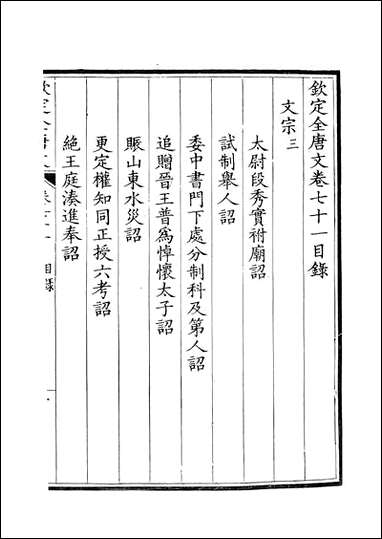 欽定全唐文卷七十一目錄
文宗三
太尉段秀實祔廟詔
試制舉人詔
委中書門下處分制科及第人詔
追贈晉王普爲悼懷太子詔
賑山東水災詔
更定權知同正授六考詔
絶王庭湊進奉詔
目錄